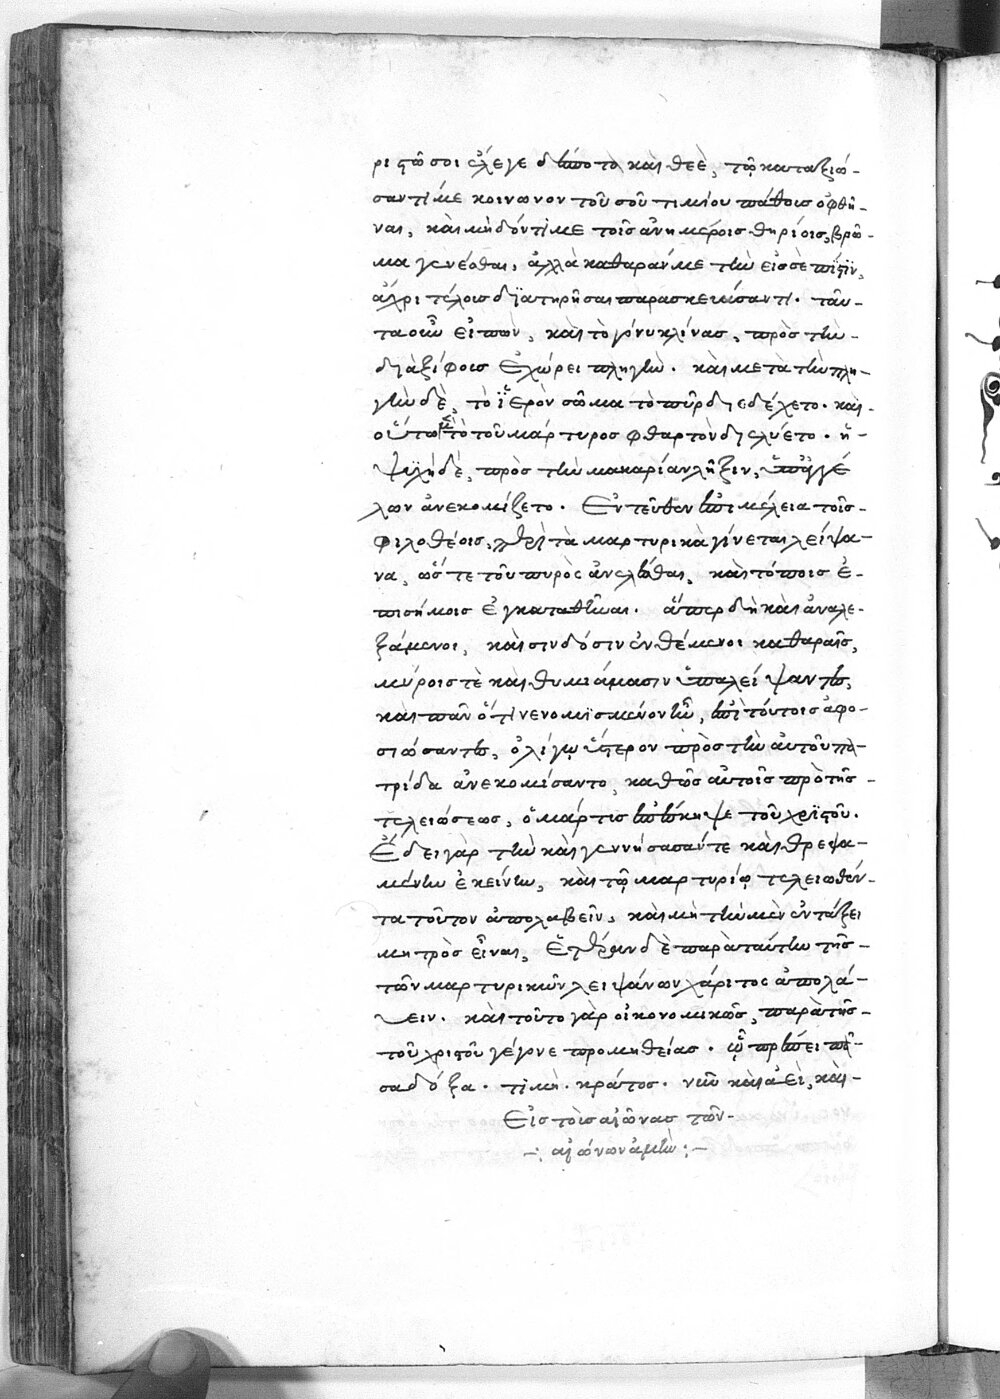 ριστῶ σοι ἔλεγε δέσποτα καὶ θεὲ, τῶ καταξιώ-
σαντί με κοινωνον τοῦ σοῦ τιμίου πάθους ὀφθῆ-
ναι, καὶ μὴ δόντί με τοῖς ἀνημέροις θηρίοις, βρῶ-
μα γενέσθαι, ἀλλὰ καθαράν με τὴν εἰς σὲ πίστϊν,
ἄχρι τέλους διατηρῆσαι παρασκευάσαντι. ταῦ-
τα οὖν εἰπὼν, καὶ τὸ γόνυ κλίνας, πρὸς τὴν-
διὰ ξίφους ἐχώρει πληγήν. καὶ μετὰ τὴν πλη-
γὴν δὲ, τὸ ϊερὸν σῶμα τὸ πῦρ διεδέχετο. καὶ-
οὕτω μὲν τὸ τοῦ μάρτυρος φθαρτὸν διελύετο. ἡ-
ψυχὴ δὲ, πρὸς τὴν μακαρίαν λῆξιν, ὑπ' ἀγγέ
λων ἀνεκομίζετο. Εντεῦθεν ἐπιμέλεια τοῖς-
φιλοθέοις, περὶ τὰ μαρτυρικὰ γίνεται λείψα-
να, ὥστε τοῦ πυρὸς ἀνελέσθαι, καὶ τόποις ἐ-
πισήμοις ἐγκαταθεῖναι. ἅπερ δὴ καὶ ἀναλε-
ξάμενοι, καὶ σινδόσιν ἐνθέμενοι καθαραῖς,
μύροις τὲ καὶ θυμιάμασιν ὑπαλείψαντες,
καὶ πᾶν ὅτι νενομϊσμένον ἦν, ἐπὶ τούτοις ἀφο-
σιώσαντες, ὀλίγω ὕστερον πρὸς τὴν αὐτοῦ πα-
τρίδα ἀνεκομίσαντο, καθὼς αὐτοῖς πρὸ τῆς-
τελειώσεως, ὁ μάρτις ἐπέσκηψε τοῦ χριστοῦ.
Ἔδει γὰρ τὴν καὶ γεννήσασάν τε καὶ θρεψα-
μένην ἐκείνην, καὶ τῶ μαρτυρίω τελειωθέν-
τα τοῦτον ἀπολαβεῖν, καὶ μὴ τὴν μὲν ἐν τάξει
μητρὸς εἶναι, ἕτέραν δὲ παρὰ ταύτην τῆς-
τῶν μαρτυρικῶν λειψάνων χάριτος ἀπολά-
υειν. καὶ τοῦτο γὰρ οἰκονομικῶς, παρὰ τῆς-
τοῦ χριστοῦ γέγονε προμηθείας. ᾧ πρέπει πᾶ-
σα δόξα. τιμὴ. κράτος. νῦν καὶ ἀεὶ, καὶ-
Εἰς τοὺς αἰῶνας τῶν-
-: αἰώνων ἀμὴν :-